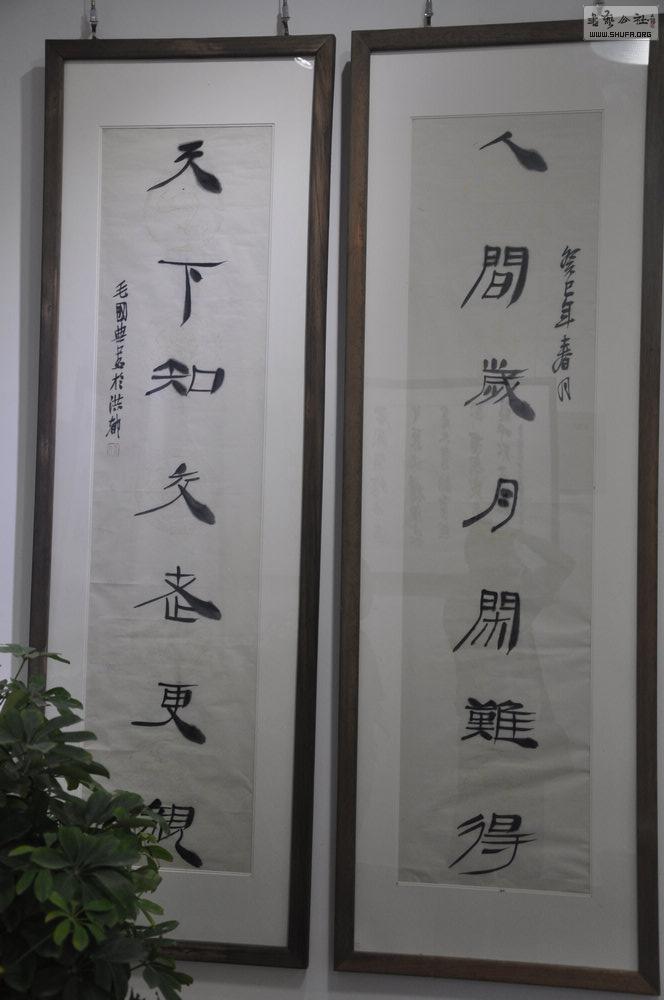 書藝公社
WWW.SHUFA.ORG
癸巳年春月
人間歲月閑難得
天下知交老更親
毛國典書於洪都